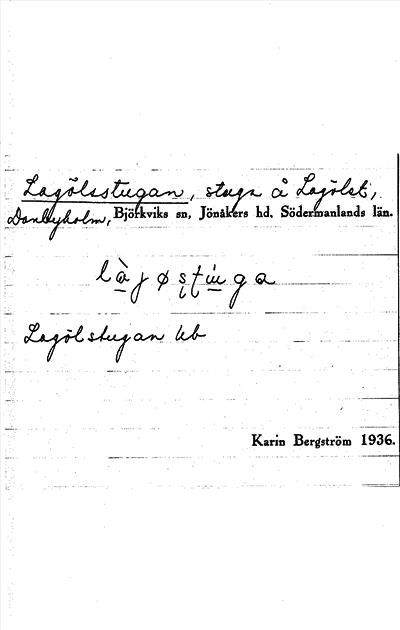 Lagölsstugan, stuga å Lagölet,
Danbyholm, Björkviks sn, Jönåkers hd, Södermanlands län.
Lagölstugan kb
Karin Bergström 1936.